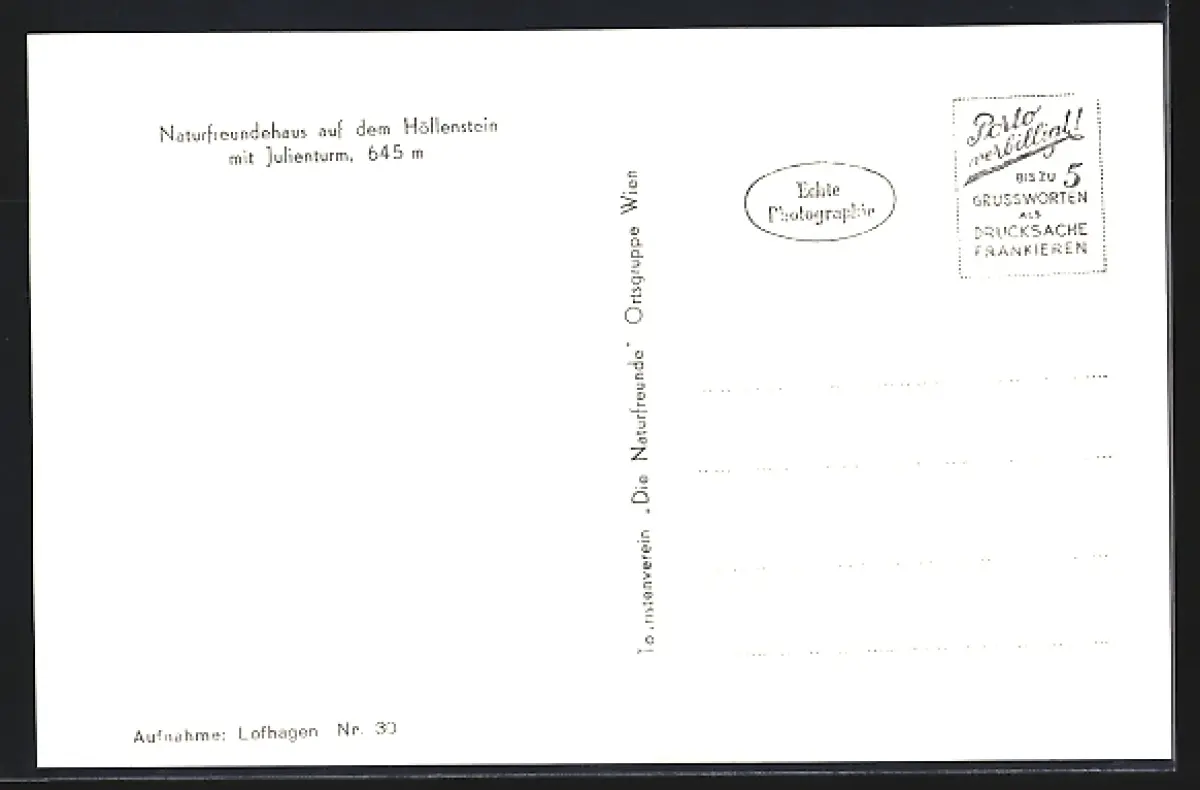 Naturfreundehaus auf dem Höllenstein
mit Julienturm, 645 m
Aufnahme: Lofhagen Nr. 30
Touristenverein „Die Naturfreunde" Ortsgruppe Wien
Echte
Photographie
Porto
verbilligt!
BIS ZU 5
GRUSSWORTEN
ALS
DRUCKSACHE
FRANKIEREN